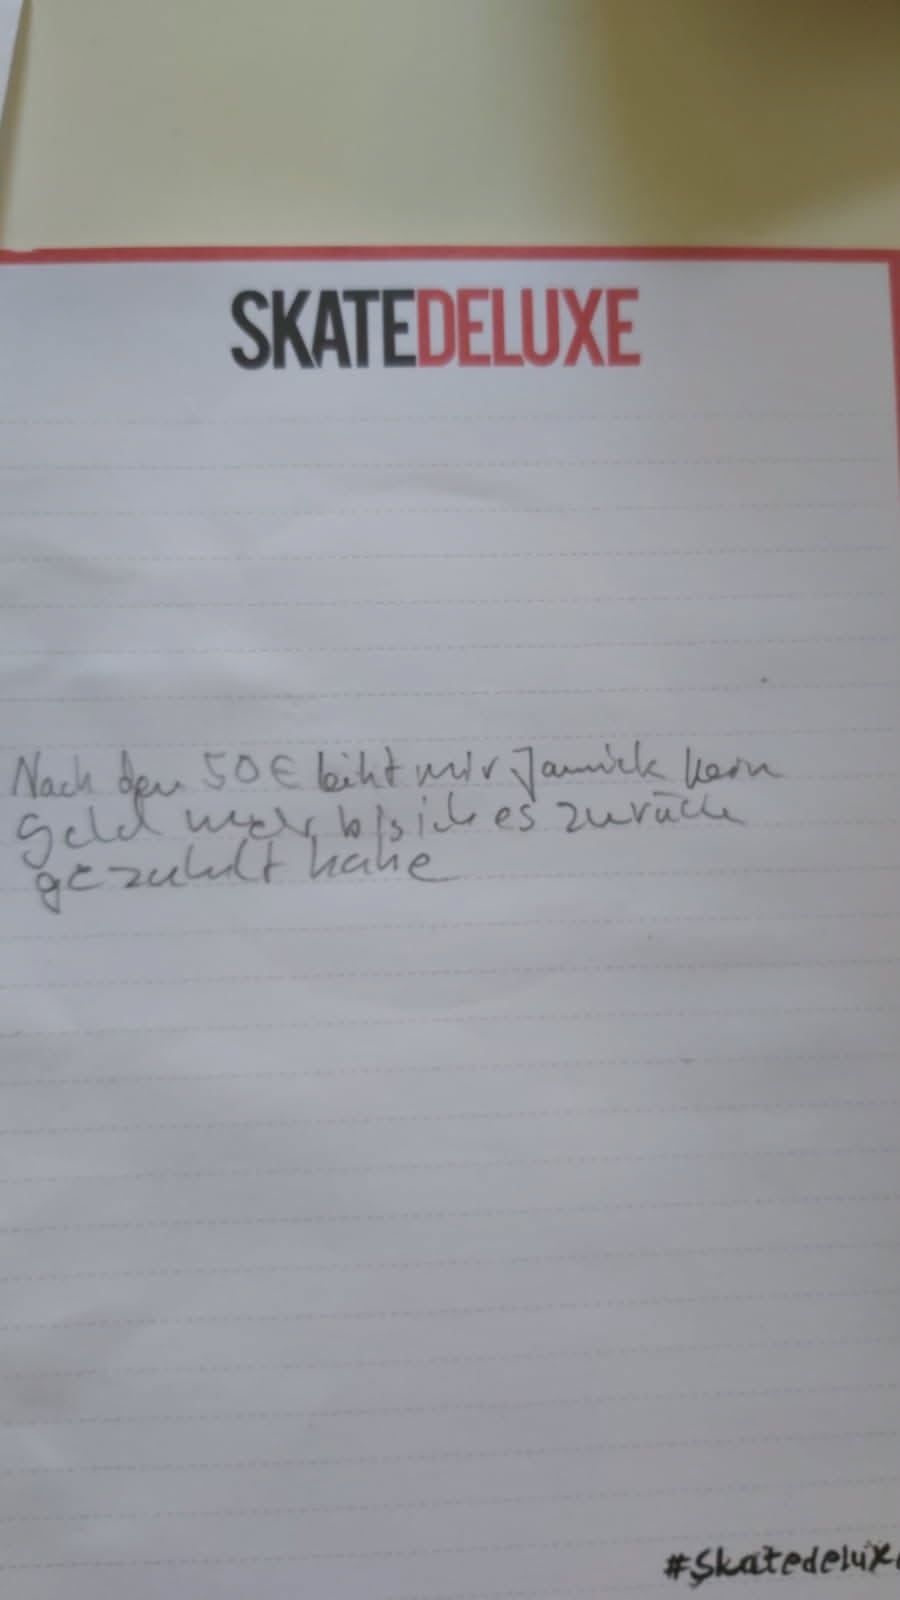 SKATEDELUXE
Nach den 50€ leiht mir Jannick kein
Geld mehr bis ich es zurück
gezahlt habe
#Skatedeluxe